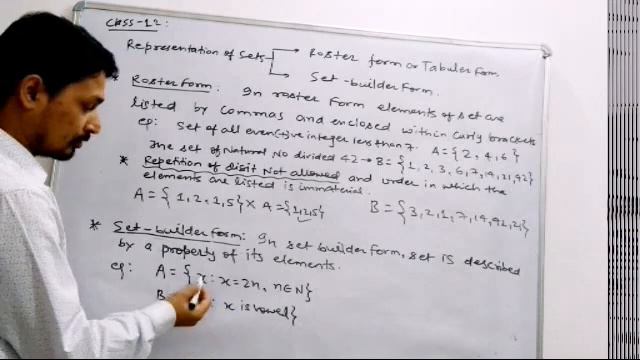 Class-12:
Representation of Sets → Roster form or Tabular Form
→ Set-builder Form.
* Roster Form: In roster Form elements of set are
listed by commas and enclosed within curly brackets
eg: Set of all even(+)ve integer less than 7. A = {2, 4, 6}
The set of Natural No divided 42 → B = {1, 2, 3, 6, 7, 14, 21, 42}
* Repetition of digit Not allowed and order in which the
elements are listed is immaterial.
A = {1, 2, 1, 5} × A = {1, 2, 5} B = {3, 2, 1, 7, 14, 42, 21}
* Set-builder form: In set builder form, set is described
by a property of its elements.
eg: A = { x : x = 2n, n ∈ N}
B : x is vowel}